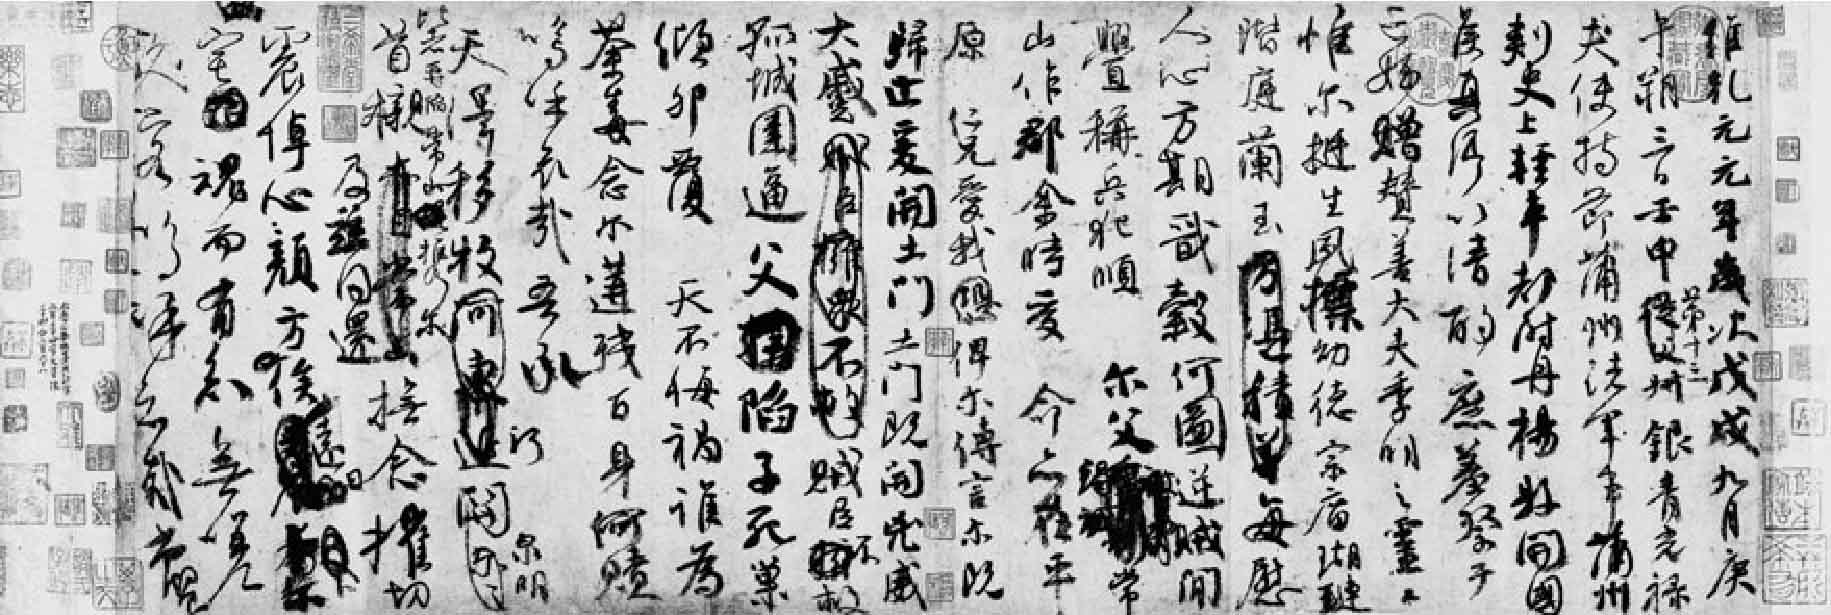 維乾元元年歲次戊戌九月庚
午朔三日壬申第十三叔銀青光祿
夫使持節蒲州諸軍事蒲州
刺史上輕車都尉丹楊縣開國
侯真卿以清酌庶羞祭于
亡姪贈贊善大夫季明之靈曰
惟爾挺生夙標幼德宗廟瑚璉
階庭蘭玉方憑積善每慰
人心方期戩穀何圖逆賊間
釁稱兵犯順爾父竭誠常
山作郡余時受命亦在平
原仁兄愛我俾爾傳言爾既
歸止爰開土門土門既開兇威
大蹙賊臣擁眾不救賊臣不救
孤城圍逼父陷子死巢
傾卵覆天不悔禍誰為
荼毒念爾遘殘百身何贖
嗚乎哀哉吾承
天澤移牧河東近河關泉明
比者再陷常山攜爾
首櫬及茲同還撫念摧切
震悼心顏方俟遠日卜爾
宅魂而有知無嗟
久客嗚呼哀哉尚饗